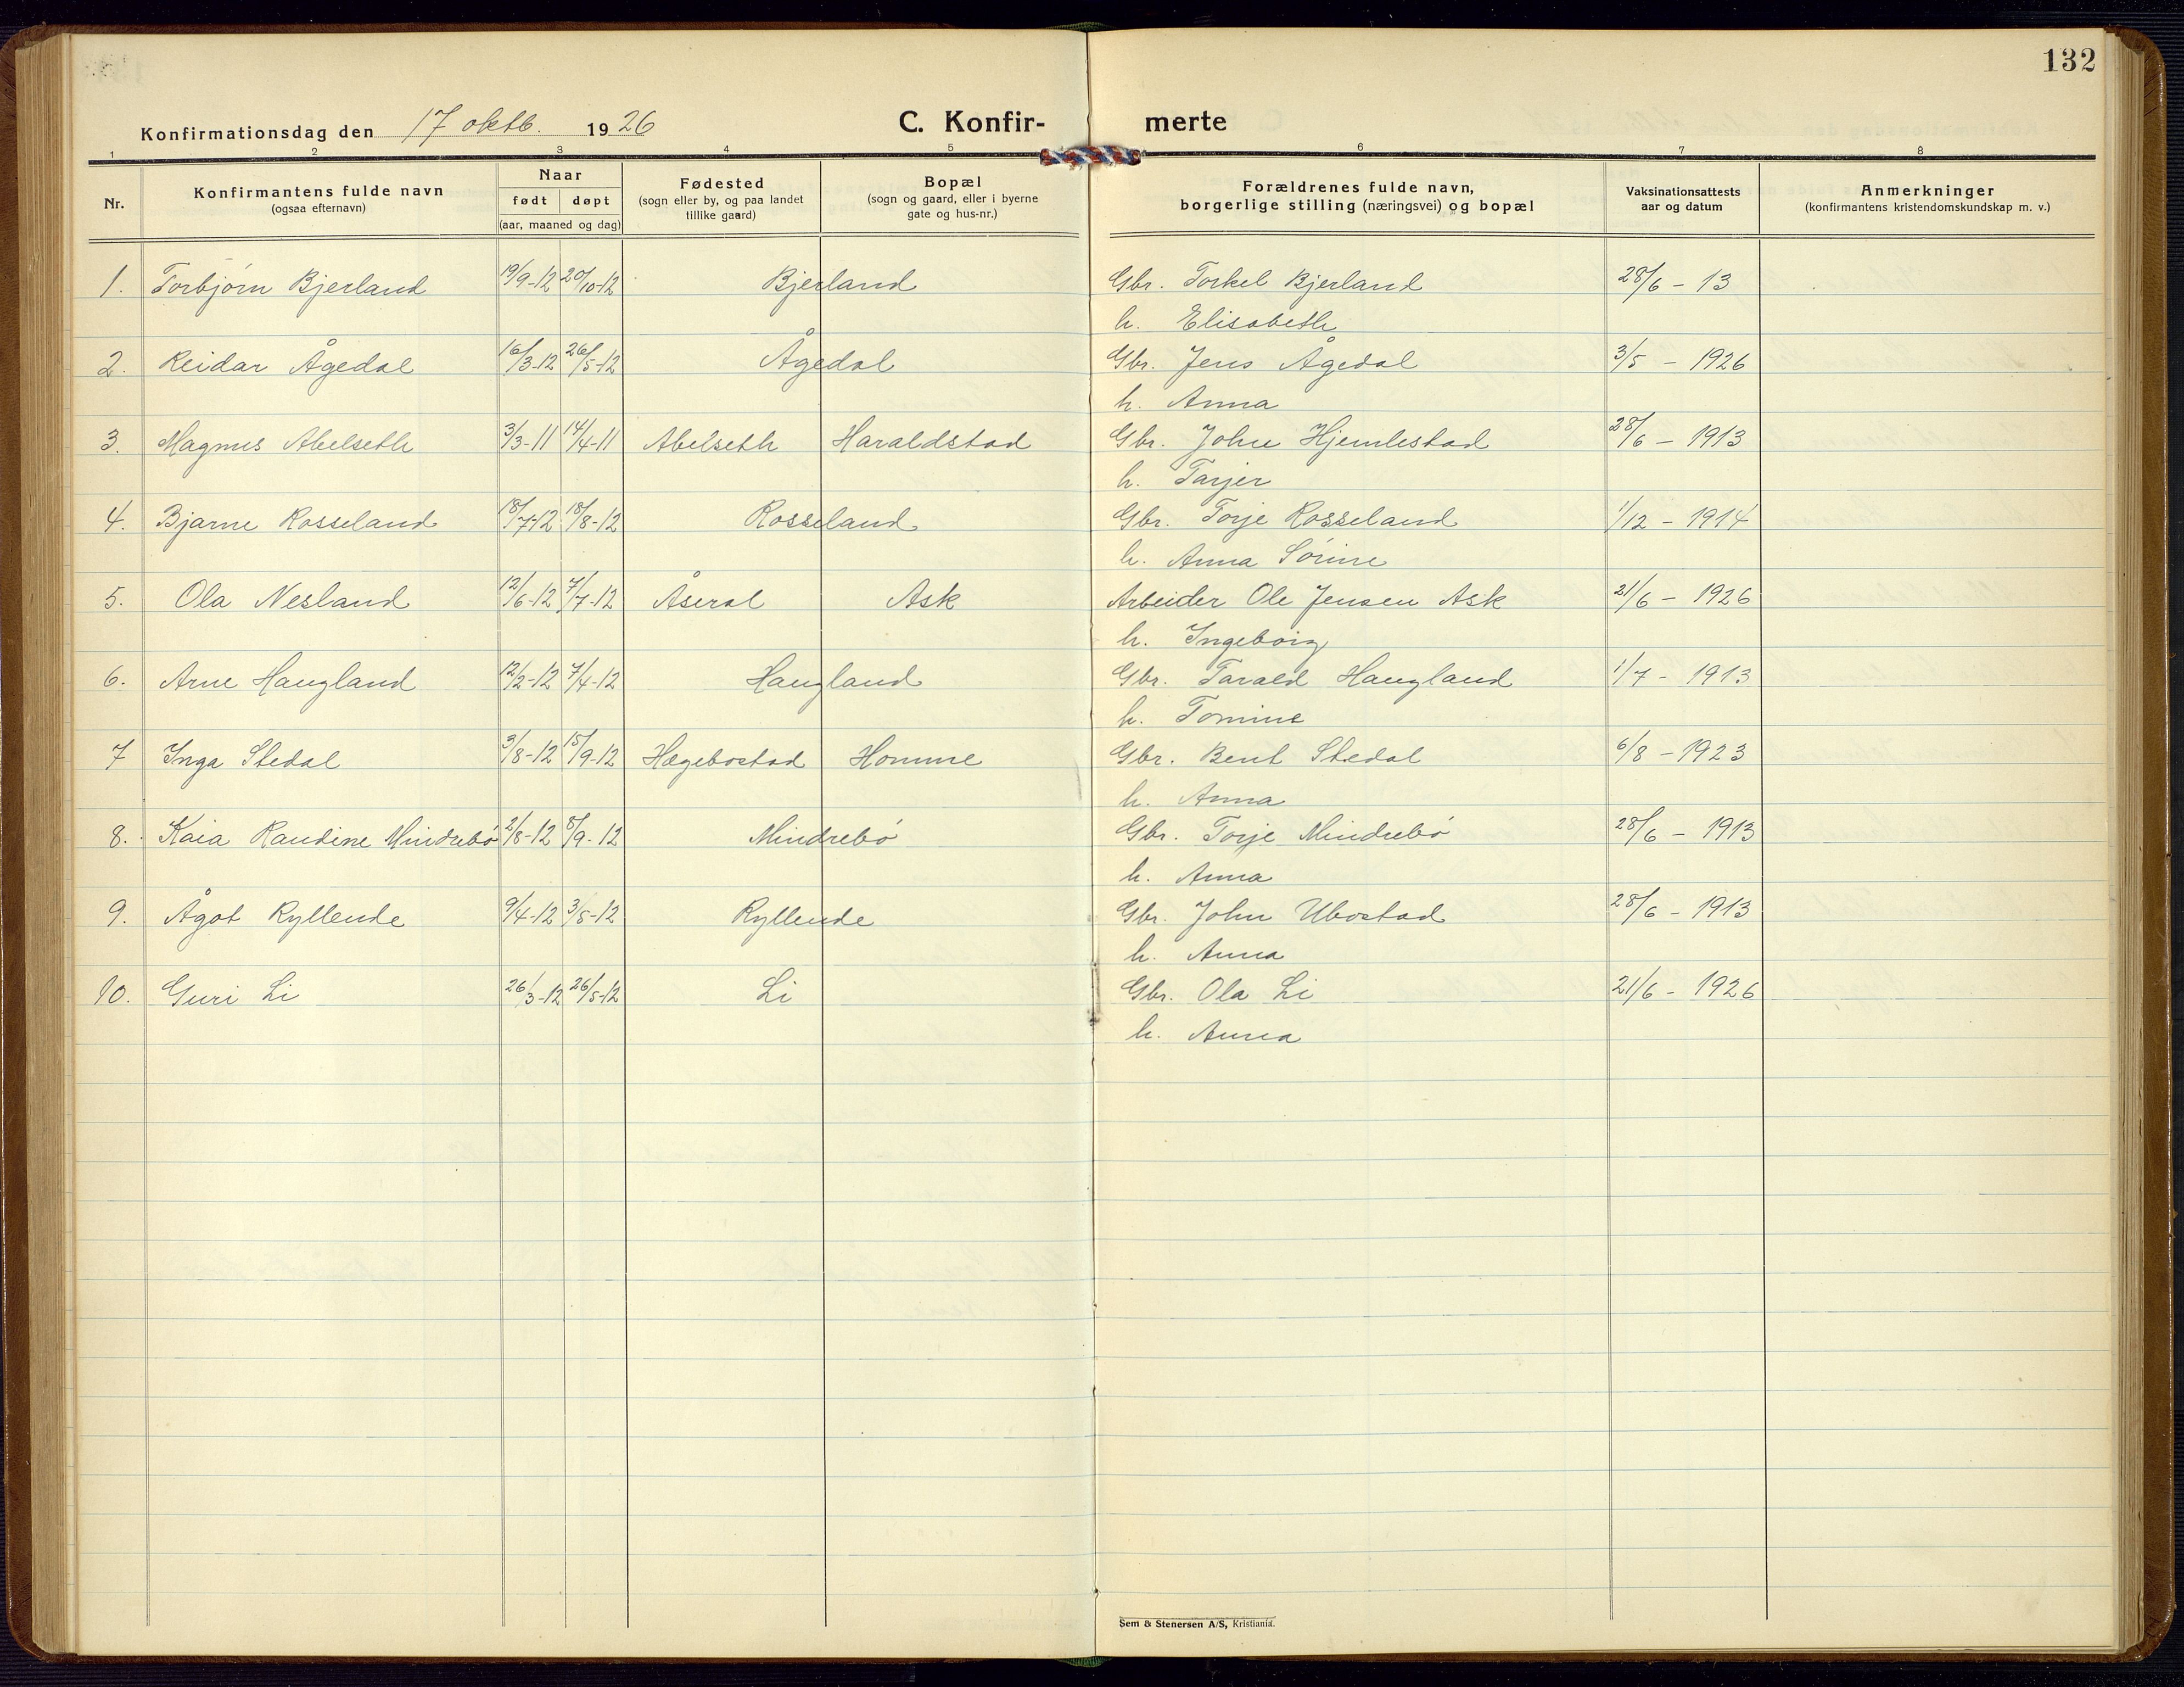 132
Konfirmationsdag den 17 oktb. 1926 C. Konfir- merte
1 2 3 4 5 6 7 8
Nr. Konfirmantens fulde navn (ogsaa efternavn) Naar født døpt (aar, maaned og dag) Fødested (sogn eller by, og paa landet tillike gaard) Bopæl (sogn og gaard, eller i byerne gate og hus-nr.) Forældrenes fulde navn, borgerlige stilling (næringsvei) og bopæl Vaksinationsattests aar og datum Anmerkninger (konfirmantens kristendomskundskap m. v.)
1. Torbjørn Bjerland 19/9-12 20/10-12 Bjerland Gbr. Torkel Bjerland 28/6 - 13
h. Elisabeth
2. Reidar Ågedal 16/3-12 26/5-12 Ågedal Gbr. Jens Ågedal 3/5 - 1926
h. Anna
3. Magnus Abelseth 3/3-11 14/4-11 Abelseth Haraldstad Gbr. John Hjemlestad 28/6 - 1913
h. Tarjer
4. Bjarne Rosseland 18/7-12 18/8-12 Rosseland Gbr. Torje Rosseland 1/12 - 1914
h. Anna Sørine
5. Ola Nesland 12/6-12 7/7-12 Åseral Ask Arbeider Ole Jensen Ask 21/6 - 1926
h. Ingeborg
6. Arne Haugland 12/2-12 7/4-12 Haugland Gbr. Tarald Haugland 1/7 - 1913
h. Tomine
7 Inga Stedal 3/8-12 15/9-12 Hægebostad Homme Gbr. Bent Stedal 6/8 - 1923
h. Anna
8. Kaia Randine Mindrebø 2/8-12 8/9-12 Mindrebø Gbr. Torje Mindrebø 28/6 - 1913
h. Anna
9. Ågot Ryllende 9/4-12 3/5-12 Ryllende Gbr. John Ubostad 28/6 - 1913
h. Anna
10. Guri Li 26/3-12 26/5-12 Li Gbr. Ola Li 21/6 - 1926
h. Anna
Sem & Stenersen A/S, Kristiania.